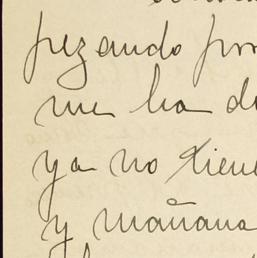 pezando por
me ha d
ya no tiene
y mañana